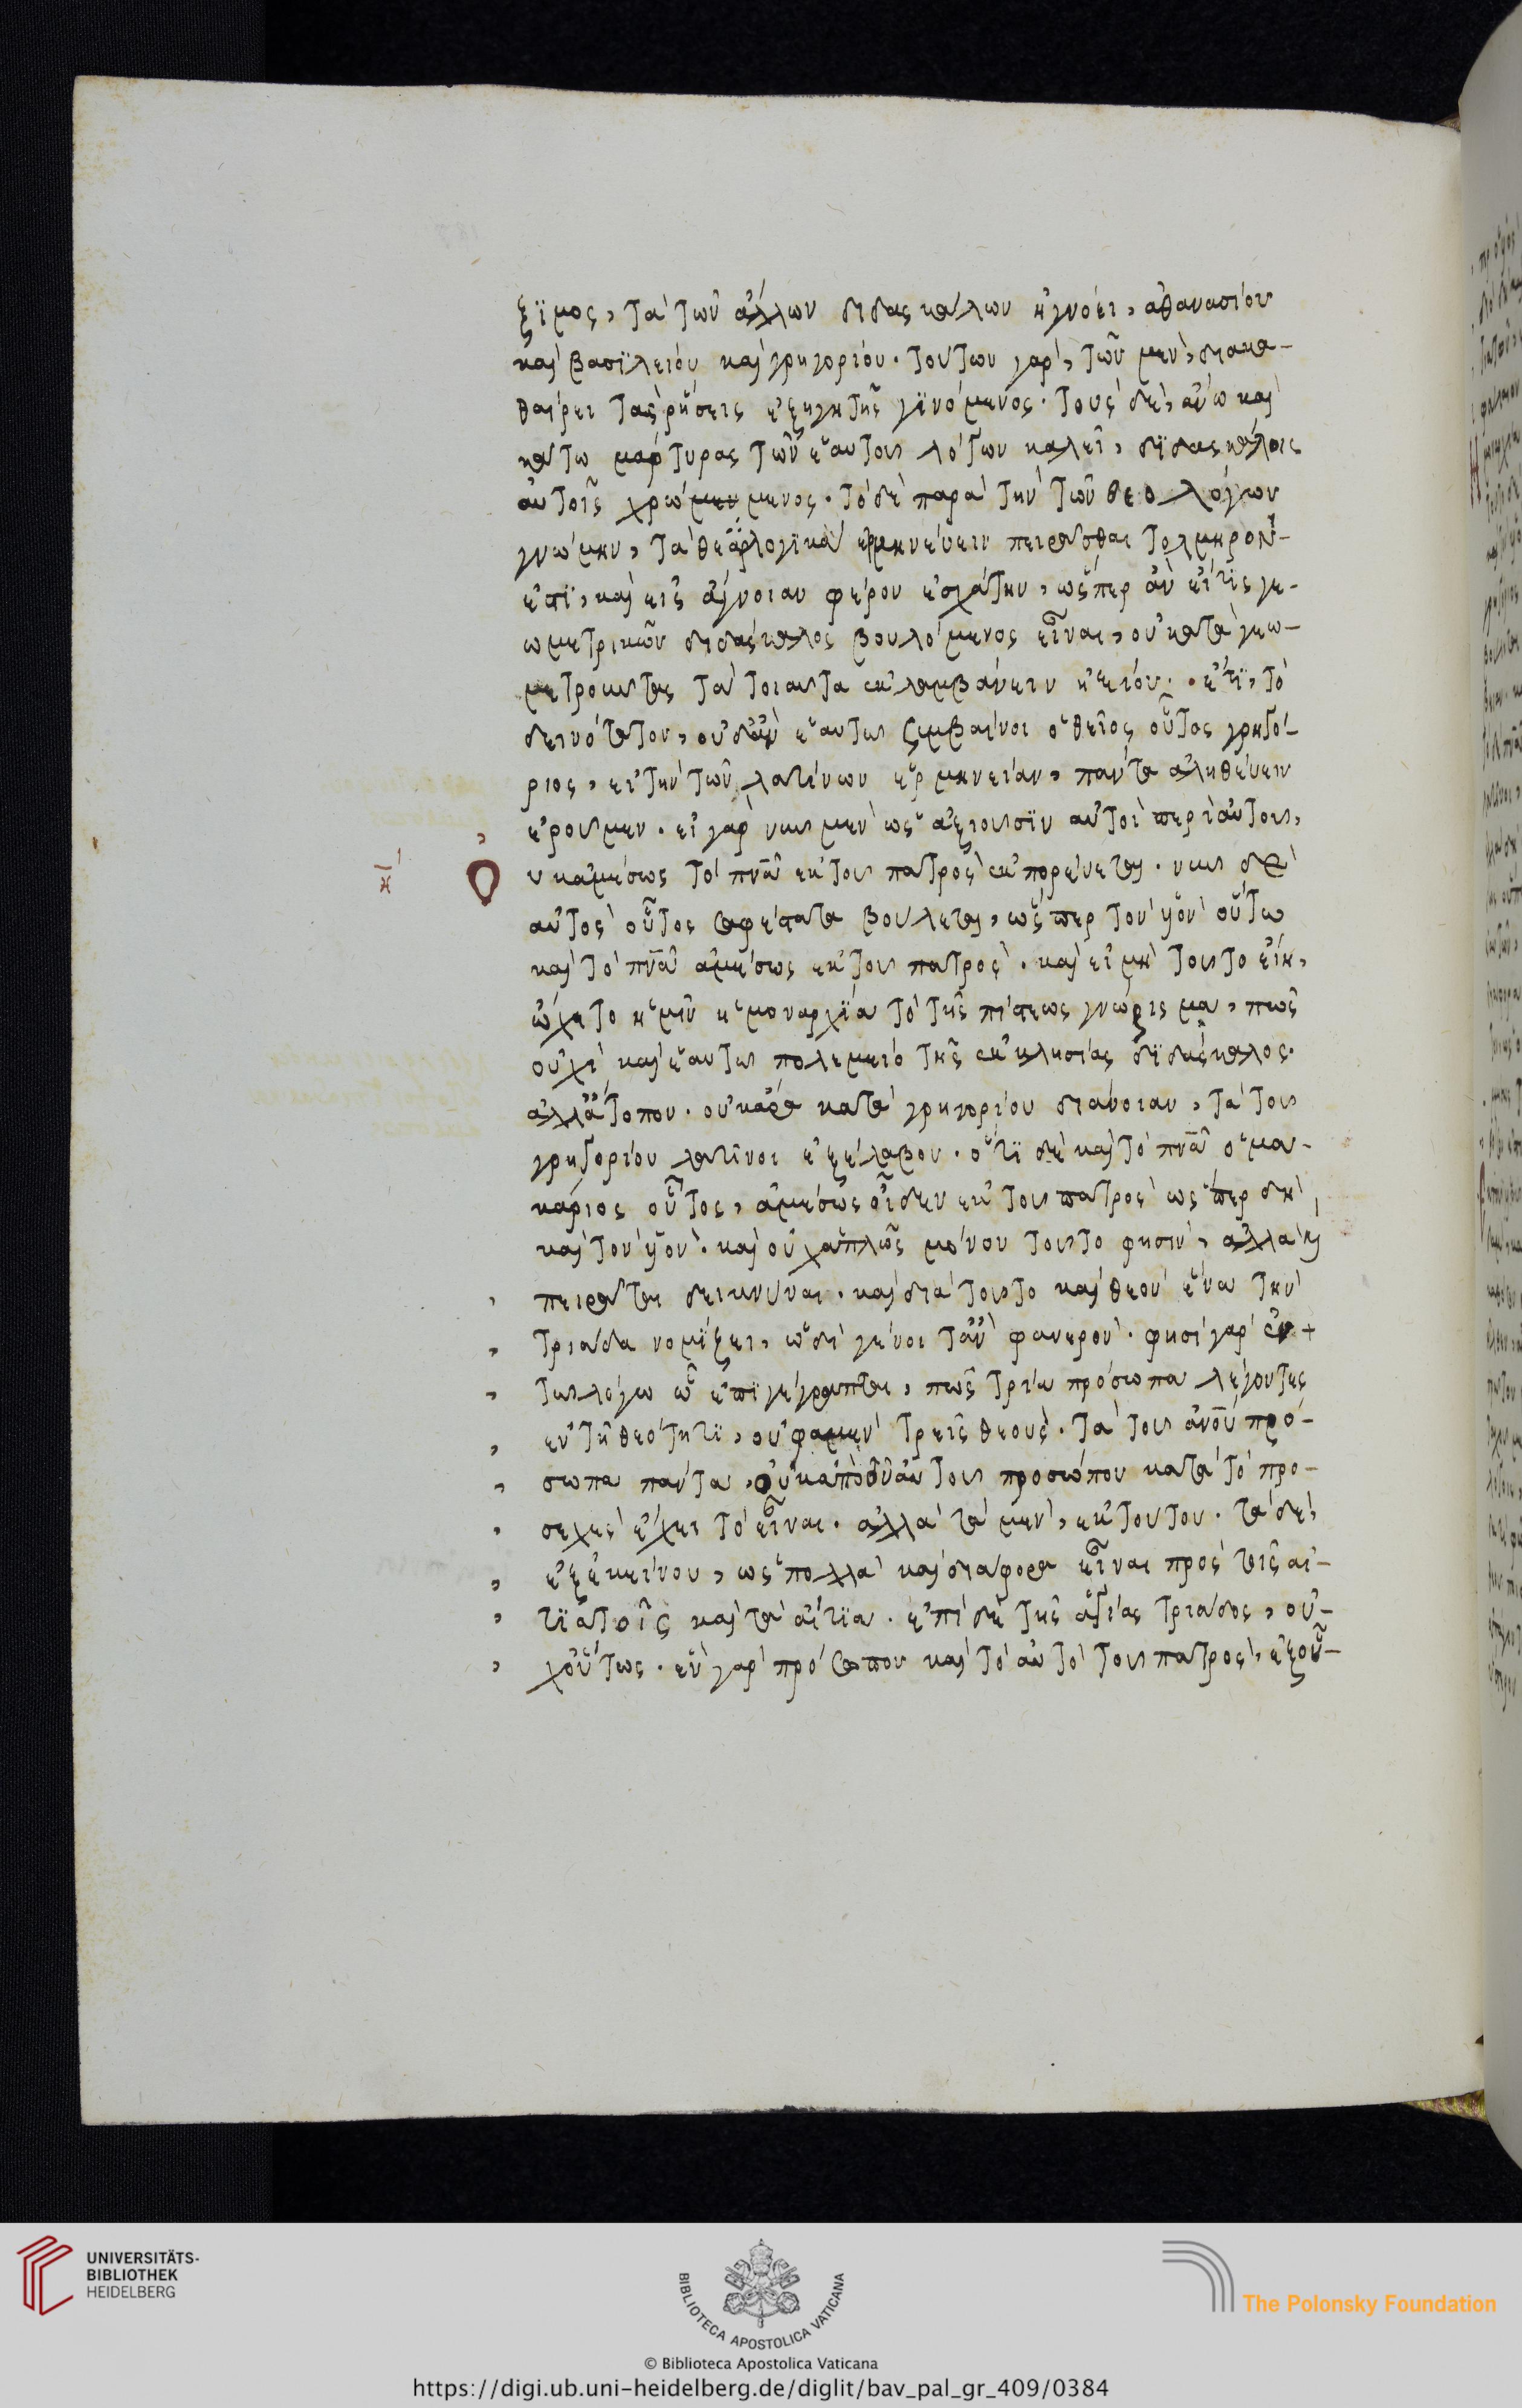 ξιμος, τὰ τῶν ἄλλων διδασκάλων ἠγνόει, ἀθανασίου
καὶ βασιλείου καὶ γρηγορίου. τούτων γὰρ, τῶν μὲν, διακα-
θαίρει τὰς ῥήσεις ἐξηγητὴς γινόμενος. τοὺς δὲ, ἄνω καὶ
κάτω μάρτυρας τῶν ἑαυτοῦ λόγων καλεῖ, διδασκάλοις
αὐτοῖς χρώμενος. τὸ δὲ παρὰ τὴν τῶν θεολόγων
γνώμην, τὰ θεολογικὰ ἑρμηνεύειν πειρᾶσθαι τολμηρὸν
ἐστι, καὶ εἰς ἄγνοιαν φέρον ἐσχάτην, ὥσπερ ἂν εἴ τις γε-
ωμετρικῶν διδάσκαλος βουλόμενος εἶναι, οὐ κατὰ γεω-
μετροῦντας τὰ τοιαῦτα ἐκλαμβάνειν ἠξίου. ἔτι, τὸ
δεινότατον, οὐδ' ἂν ἑαυτῶ συμβαίνοι ὁ θεῖος οὗτος γρηγό-
ριος, εἰ τὴν τῶν λατίνων ἑρμηνείαν, πάντα ἀληθεύειν
ἐροῦμεν. εἰ γὰρ νῦν μὲν ὡς ἀξιοῦσιν αὐτοὶ περὶ αὐτοῦ,
οὐκ ἀμέσως τὸ πνα ἐκ τοῦ πατρὸς ἐκπορεύεται. νῦν δὲ
αὐτὸς οὗτος σαφέστατα βούλεται, ὥσπερ τὸν υἱὸν οὕτω
καὶ τὸ πνα ἀμέσως ἐκ τοῦ πατρὸς. καὶ εἰ μὴ τοῦτο εἴη,
ᾤχετο ἡμῖν ἡ μοναρχία τὸ τῆς πίστεως γνώρισμα, πῶς
οὐχὶ καὶ ἑαυτῶ πολεμεῖ ὁ τῆς ἐκκλησίας διδάσκαλος.
ἀλλ' ἄτοπον. οὐκ ἄρα κατὰ γρηγορίου διάνοιαν, τὰ τοῦ
γρηγορίου λατῖνοι ἐξέλαβον. ὅτι δὲ καὶ τὸ πνα ὁ μα-
κάριος οὗτος, ἀμέσως οἶδεν ἐκ τοῦ πατρὸς ὥσπερ δὴ
καὶ τὸν υἱὸν. καὶ οὐχ ἁπλῶς μόνον τοῦτο φησὶν, ἀλλὰ καὶ
πειρᾶται δεικνύναι. καὶ διὰ τοῦτο καὶ θεὸν ἕνα τὴν
τριάδα νομίζει, ὧδε γένοιτ' ἂν φανερὸν. φησὶ γὰρ ἐν
τῶ λόγω ὧ ἐπιγέγραπται, πῶς τρία πρόσωπα λέγοντες
ἐν τῆ θεότητι, οὐ φαμὲν τρεῖς θεούς. τὰ τοῦ ἀνου πρό-
σωπα πάντα, οὐκ ἀπὸ τοῦ αὐτοῦ προσώπου κατὰ τὸ προ-
σεχὲς ἔχει τὸ εἶναι. ἀλλὰ τὰ μὲν, ἐκ τούτου. τὰ δὲ,
ἐξ ἐκείνου, ὡς πολλὰ καὶ διάφορα εἶναι πρὸς τοῖς αἰ-
τιατοῖς καὶ τὰ αἴτια. ἐπὶ δὲ τῆς ἁγίας τριάδος, οὐ-
χ οὕτως. ἓν γὰρ πρόσωπον καὶ τὸ αὐτὸ τοῦ πατρὸς, ἐξ οὗ-
UNIVERSITÄTS-
BIBLIOTHEK
HEIDELBERG
BIBLIOTECA APOSTOLICA VATICANA
The Polonsky Foundation
© Biblioteca Apostolica Vaticana
https://digi.ub.uni-heidelberg.de/diglit/bav_pal_gr_409/0384